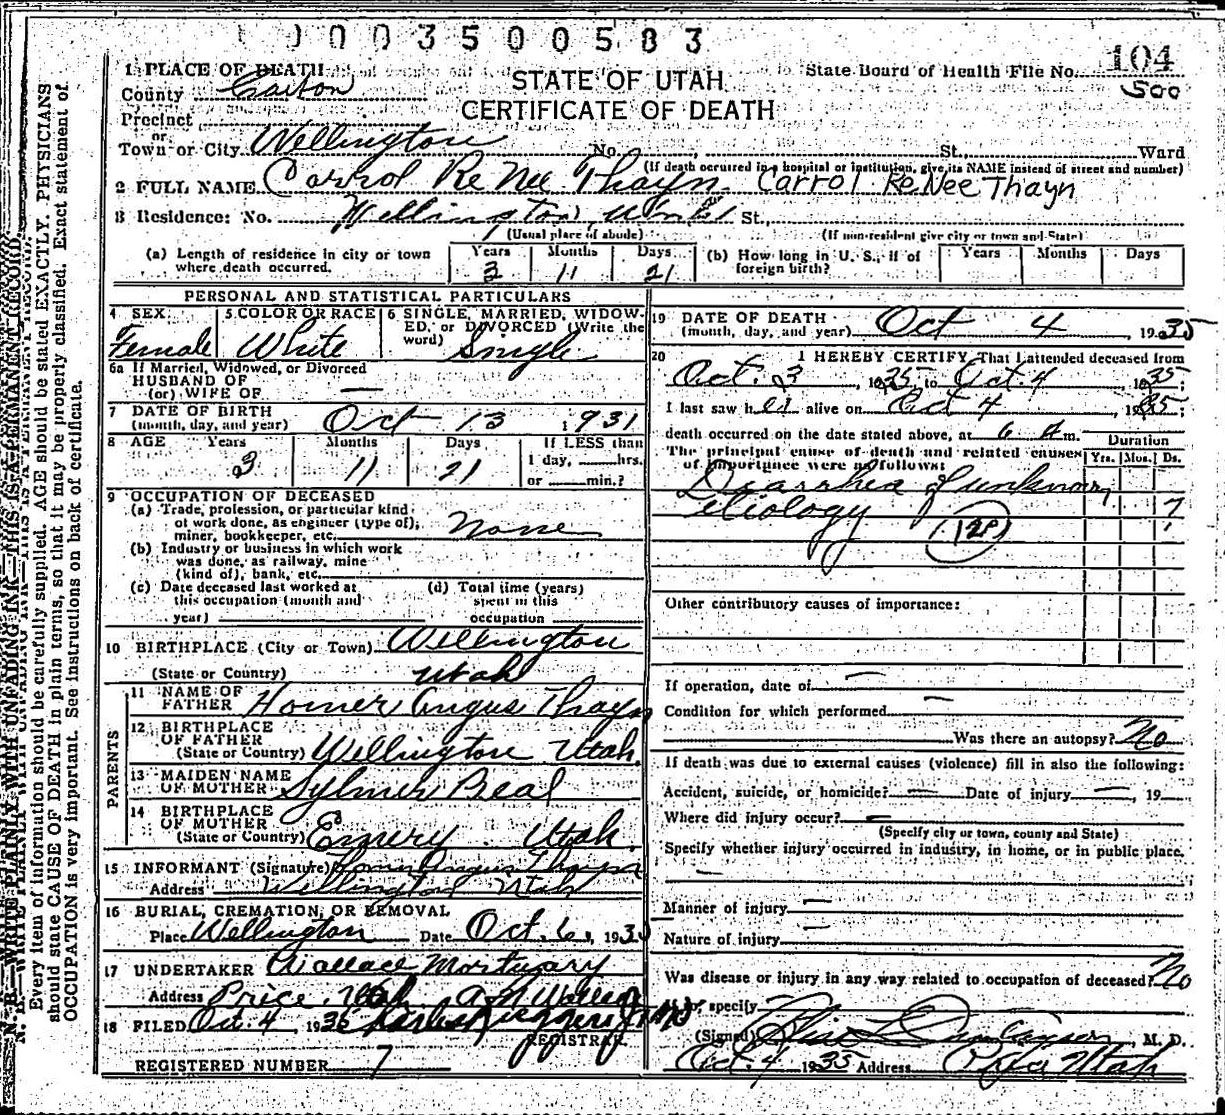 0003500583
1 PLACE OF DEATH
County Carbon
Precinct
or
Town or City Wellington No. St. Ward
STATE OF UTAH
CERTIFICATE OF DEATH
State Board of Health File No. 104
500
(If death occurred in a hospital or institution, give its NAME instead of street and number)
2 FULL NAME Carrol ReNee Thayn Carrol ReNee Thayn
3 Residence: No. Wellington, Utah St,
(Usual place of abode) (If non-resident give city or town and State)
(a) Length of residence in city or town where death occurred. Years 3 Months 11 Days 21
(b) How long in U. S., if of foreign birth? Years Months Days
PERSONAL AND STATISTICAL PARTICULARS
4 SEX Female
5 COLOR OR RACE White
6 SINGLE, MARRIED, WIDOWED, or DIVORCED (Write the word) Single
6a If Married, Widowed, or Divorced
HUSBAND OF
(or) WIFE OF —
7 DATE OF BIRTH
(month, day, and year) Oct 13 1931
8 AGE Years 3 Months 11 Days 21 If LESS than 1 day, hrs. or min.?
9 OCCUPATION OF DECEASED
(a) Trade, profession, or particular kind
of work done, as engineer (type of),
miner, bookkeeper, etc. None
(b) Industry or business in which work
was done, as railway, mine
(kind of), bank, etc.
(c) Date deceased last worked at
this occupation (month and
year)
(d) Total time (years)
spent in this
occupation
10 BIRTHPLACE (City or Town) Wellington
(State or Country) Utah
PARENTS
11 NAME OF
FATHER Homer Angus Thayn
12 BIRTHPLACE
OF FATHER
(State or Country) Wellington Utah.
13 MAIDEN NAME
OF MOTHER Sylmer Beal
14 BIRTHPLACE
OF MOTHER
(State or Country) Emery Utah.
15 INFORMANT (Signature) Homer Angus Thayn
Address Wellington Utah
16 BURIAL, CREMATION, OR REMOVAL
Place Wellington Date Oct. 6, 1935
17 UNDERTAKER Wallace Mortuary
Address Price, Utah
18 FILED Oct. 4, 1935
REGISTRAR
REGISTERED NUMBER 7
19 DATE OF DEATH
(month, day, and year) Oct 4 1935
20 I HEREBY CERTIFY That I attended deceased from
Oct. 3, 1935, to Oct. 4, 1935;
I last saw her alive on Oct 4, 1935;
death occurred on the date stated above, at 6 a m.
The principal cause of death and related causes
of importance were as follows:
Duration
Yrs. Mos. Ds.
Diarrhea of unknown
etiology 7
Other contributory causes of importance:
If operation, date of —
Condition for which performed —
Was there an autopsy? No
If death was due to external causes (violence) fill in also the following:
Accident, suicide, or homicide? — Date of injury —, 19
Where did injury occur? —
(Specify city or town, county and State)
Specify whether injury occurred in industry, in home, or in public place.
—
Manner of injury —
Nature of injury —
Was disease or injury in any way related to occupation of deceased? No
If so, specify
(Signed) M. D.
Oct. 4 1935 Address Price Utah
N. B.—WRITE PLAINLY WITH UNFADING INK—THIS IS A PERMANENT RECORD.
Every item of information should be carefully supplied. AGE should be stated EXACTLY. PHYSICIANS
should state CAUSE OF DEATH in plain terms, so that it may be properly classified. Exact statement of
OCCUPATION is very important. See instructions on back of certificate.